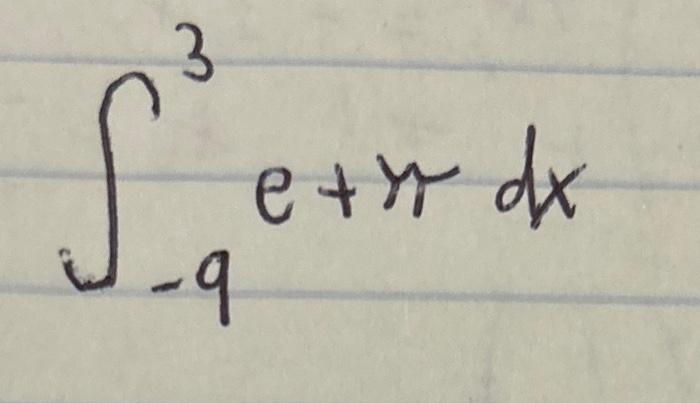 ∫_{-9}^{3} e + π dx